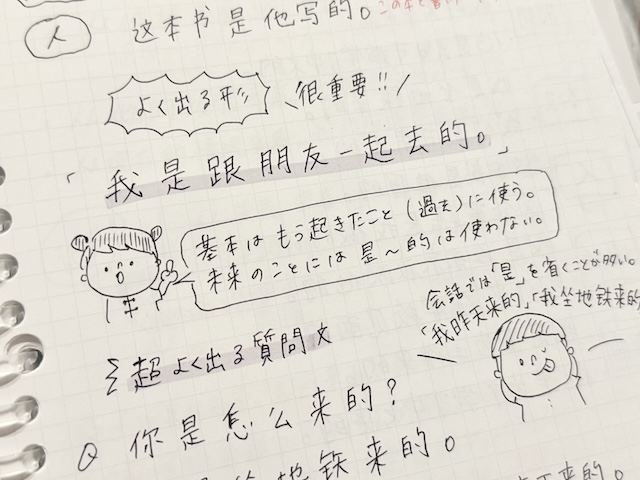 人
这本书是他写的。
よく出る形
很重要!!
「我是跟朋友一起去的。」
基本は もう起きたこと (過去)に使う。
未来のことには 是～的は使わない。
会話では「是」を省くことが多い。
「我昨天来的」「我坐地铁来的
超 よく出る質問文
Q 你是怎么来的?
地铁来的。
来的。